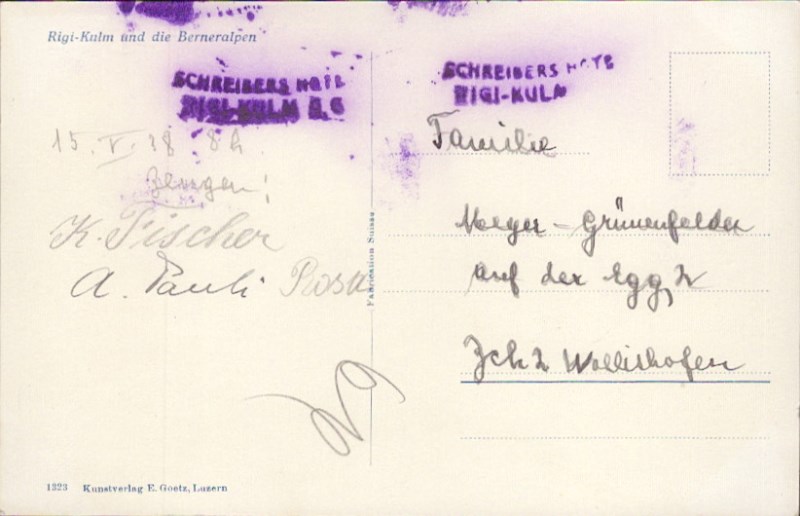 Rigi-Kulm und die Berneralpen
SCHREIBERS HOTE
RIGI-KULM
SCHREIBERS HOTE
RIGI-KULM
15. V. 8h
K. Fischer
A. Pauli Rosa
Familie
Meyer-Grünenfelder
auf der Egg 2
Zch 2 Wollishofen
Fabrication Suisse
1323 Kunstverlag E. Goetz, Luzern